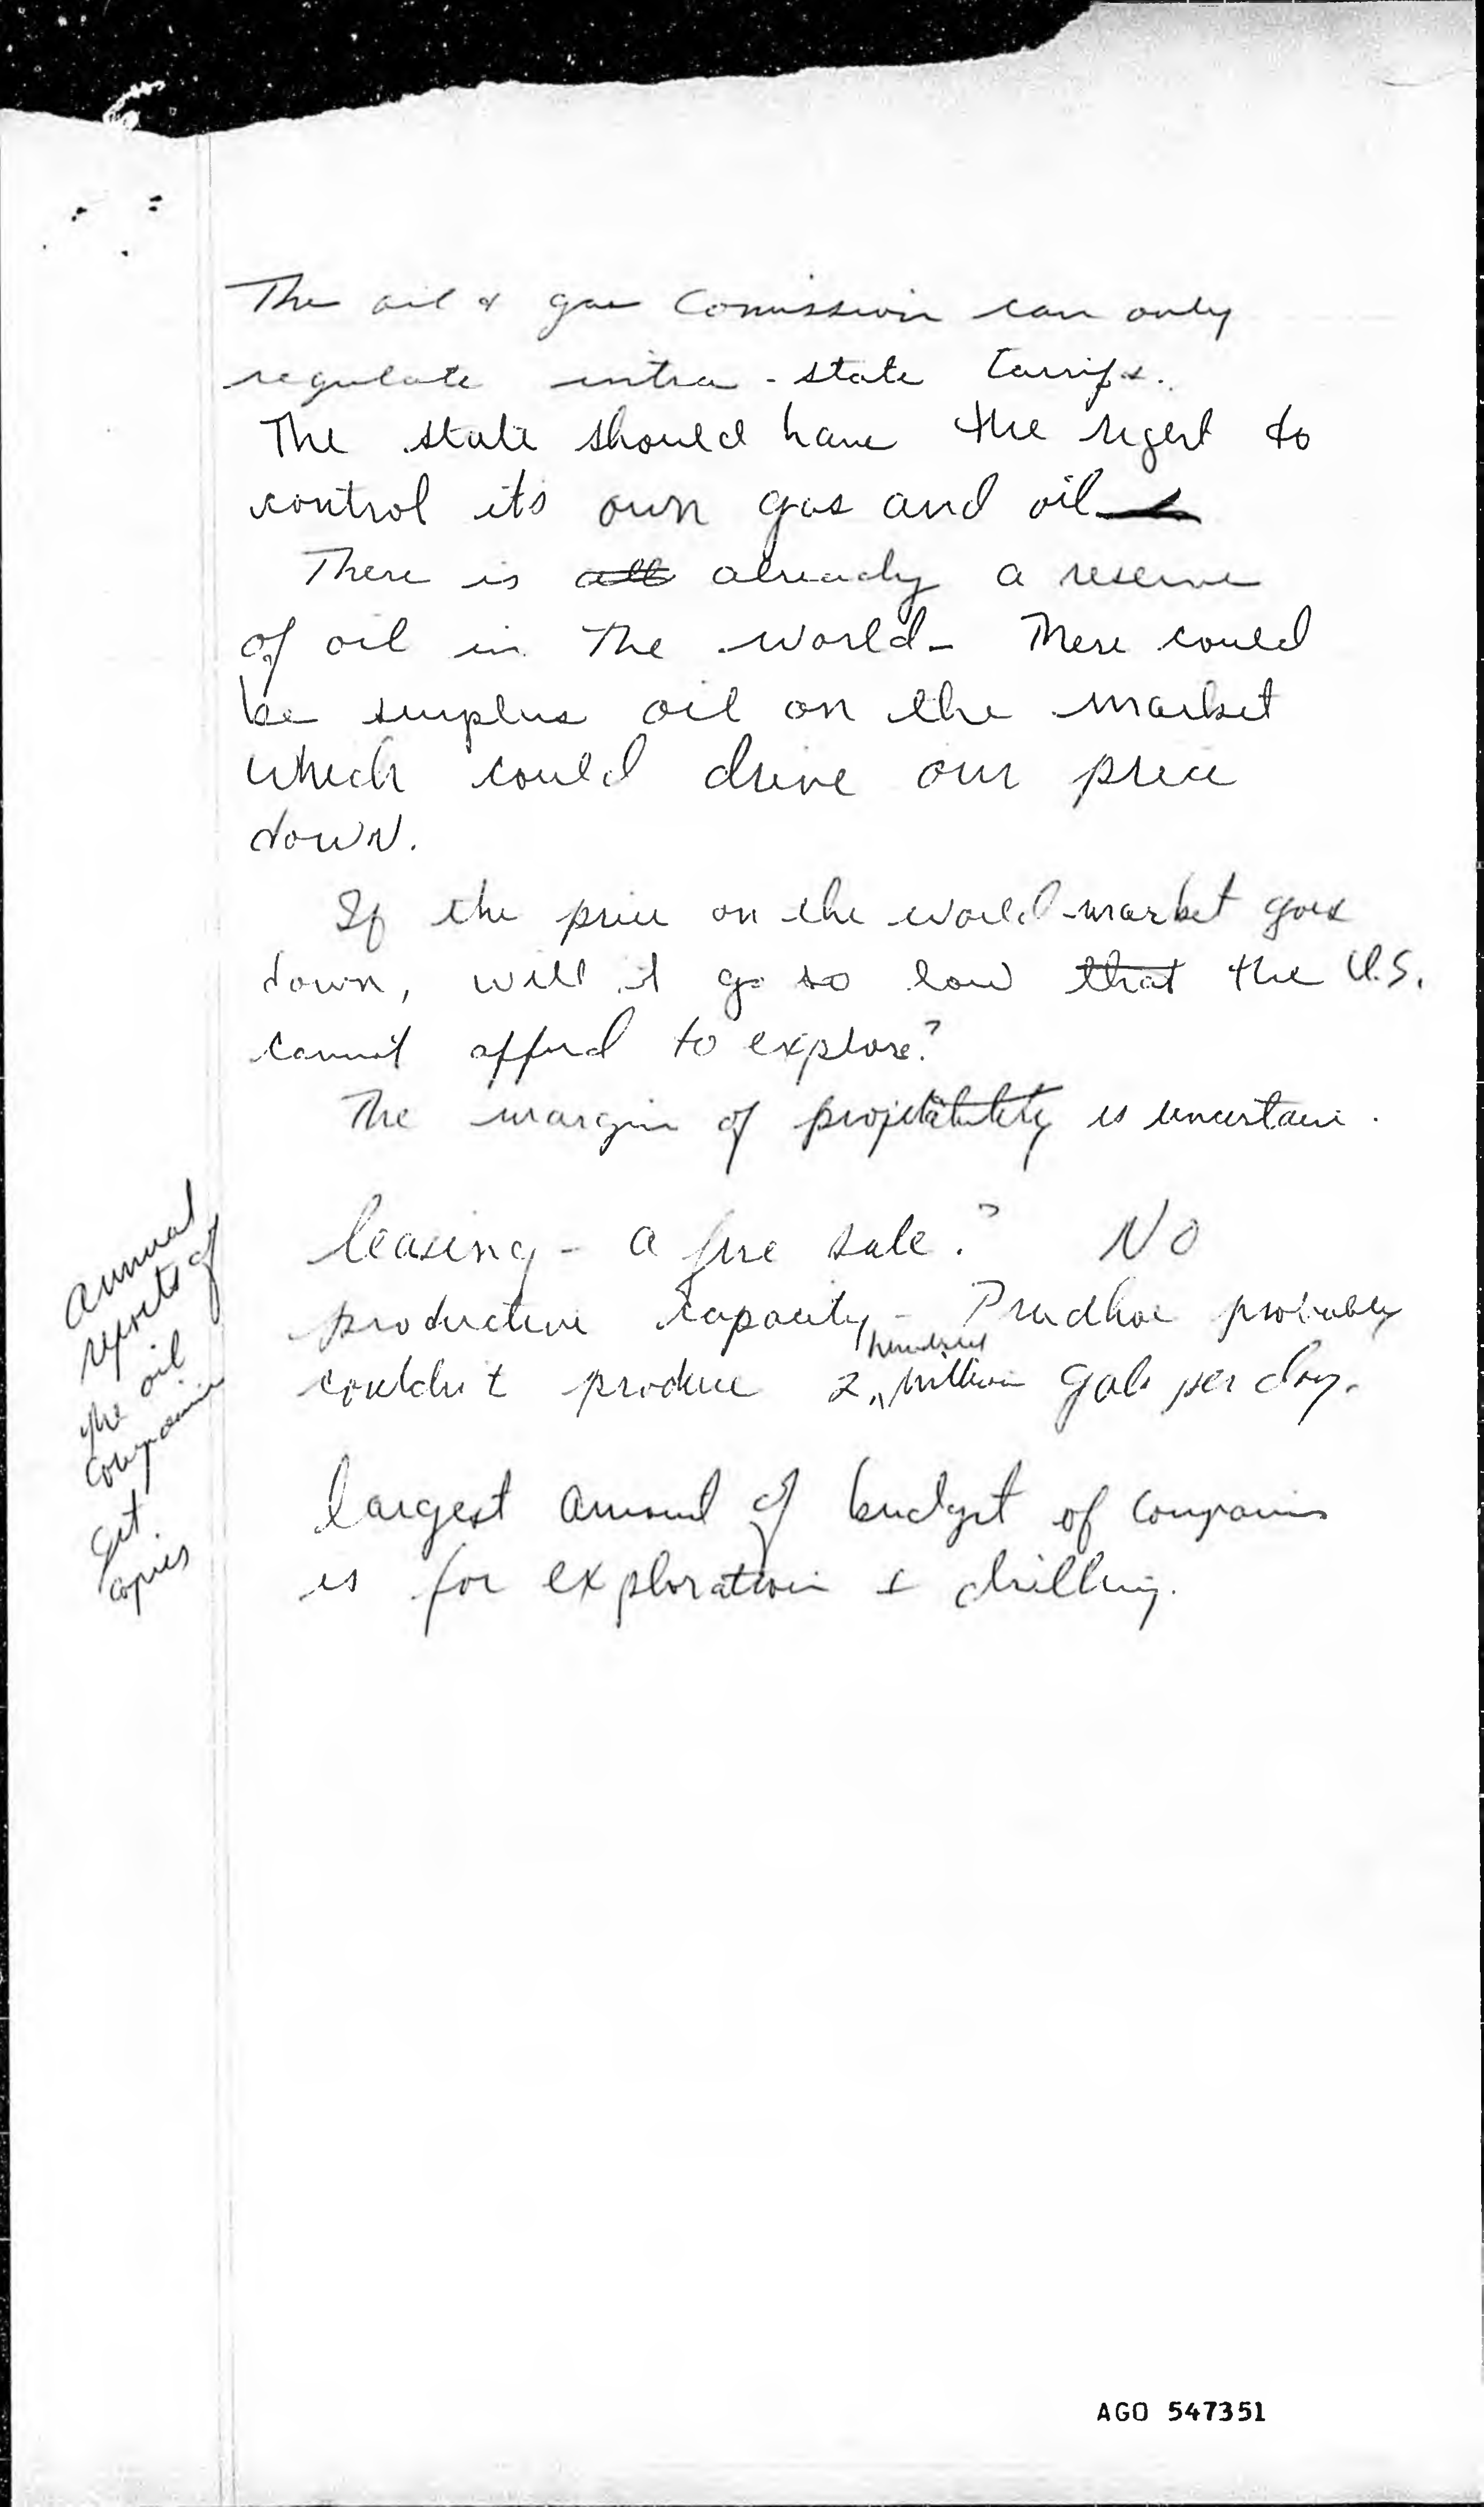 The oil & gas Comission can only
regulate intra-state tarrifs.
The state should have the right to
control its own gas and oil
There is all already a reserve
of oil in the world - There could
be surplus oil on the market
which could drive our price
down.
If the price on the world market goes
down, will it go so low that the U.S.
cannot afford to explore?
The margin of profitability is uncertain.
leasing - a fire sale? No
productive capacity - Prudhoe probably
hundred
couldn't produce 2 million gals per day.
largest amount of budget of companies
is for exploration & drilling.
annual
reports of
the oil
companies
get
copies
AGO 547351